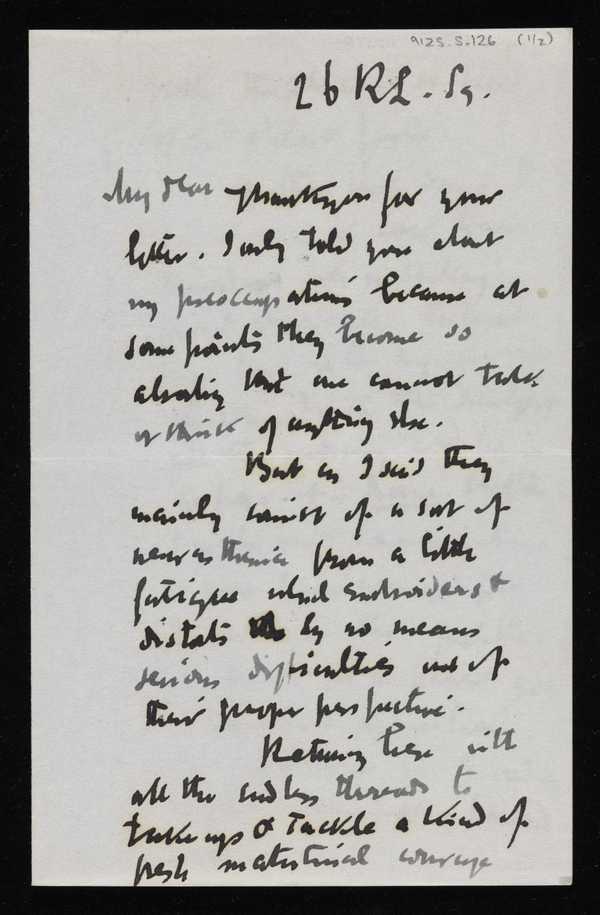 9125.S.126 (1/2)
26 R.L. Sq.
My dear Thankyou for your
letter. I only told you about
my preoccupations because at
some points they become so
that one cannot talk
or think of anything else.
But as I said they
mainly consist of a sort of
neurasthenia from a little
fatigue which embroiders &
distorts by no means
serious difficulties out of
their proper perspective.
Returning here with
all the endless threads to
take up & tackle a kind of
fresh courage